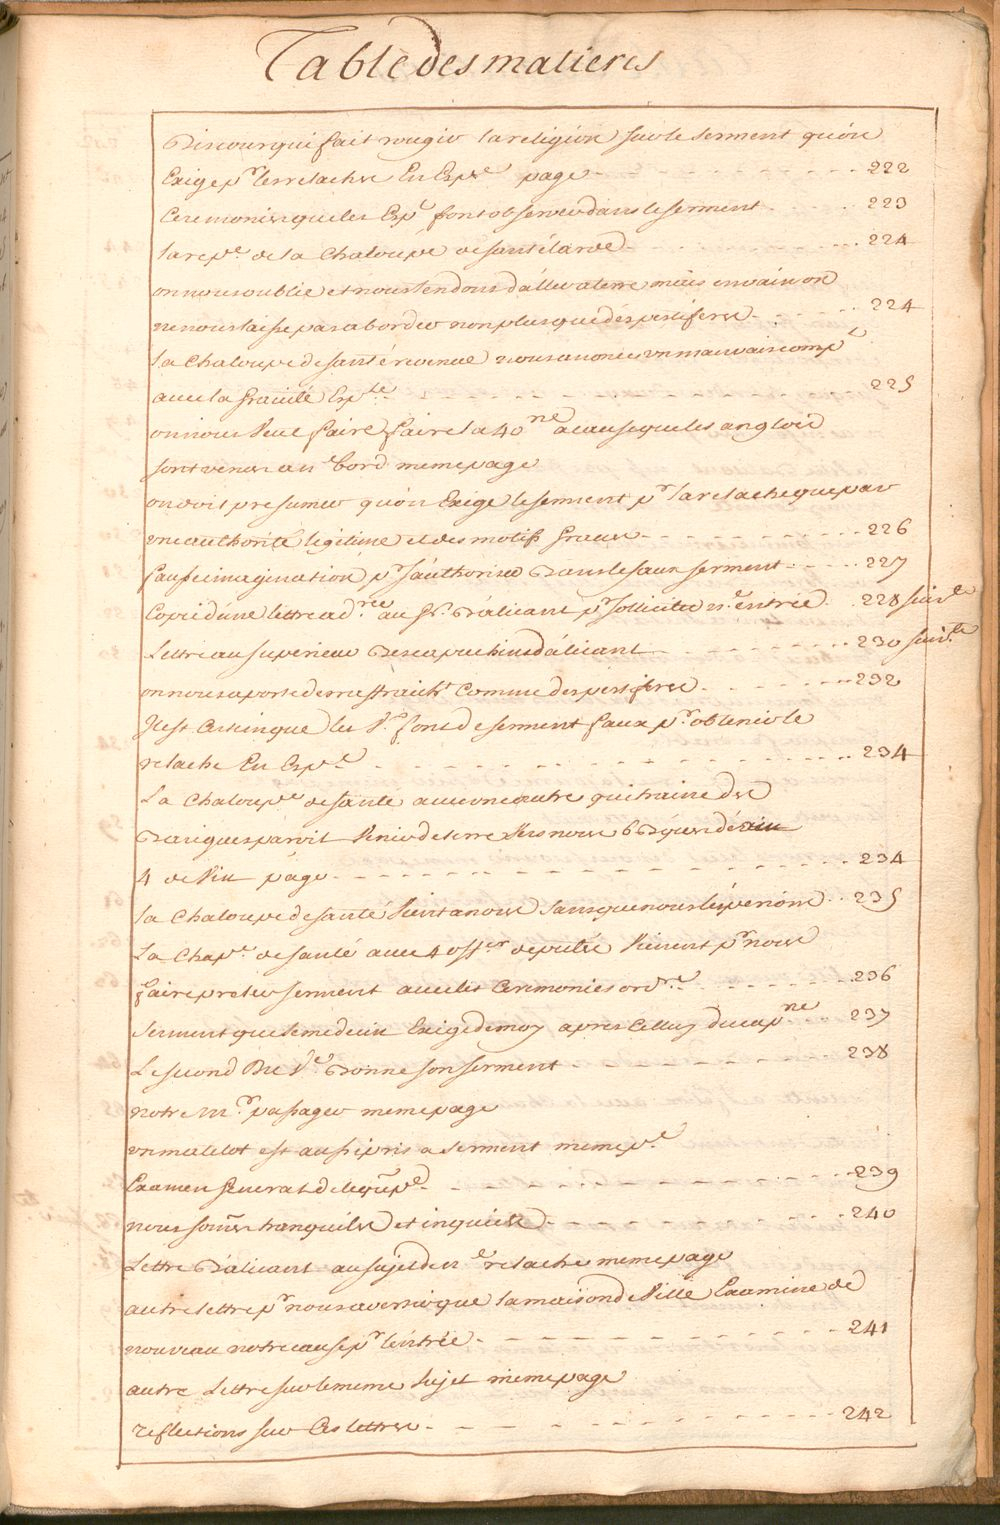 Table des matieres
Discour qui fait rougir la religion sur le serment qu'on
Exige pr les relaches En Espe page - - - 222
Ceremonies que les Espls font observer dans le serment - - - 223
la repse de la Chaloupe de santé tarde - - - 224
on nous oublie et nous tendons d'aller a terre mais en vain on
ne nous laisse pas aborder non plus que des pestiferes - - - 224
la Chaloupe de santé revenue nous avons eu un mauvais compt
avec la gravité Esple - - - 225
on nous veut faire faire la 40ne a cause que les anglois
sont venus au n.e bord meme page
on doit presumer qu'on Exige le serment pr la relache que par
une authorité legitime et des motifs graves - - - 226
fausse imagination pr s'authoriser Dans le faux serment - - - 227
Copie d'une lettre adree au Gr D'alicant pr solliciter n.e entrée 228 suivte
Lettre au superieur Des capucins d'alicant - - - 230 suivte
on nous aporte des rafraichts Comme des pestiferes - - - 232
Il est Certain que les Vx font de serment faux pr obtenir le
relache En Espe - - - 234
La Chaloupe de santé avec une autre qui traine des
Bariques paroit Venir de terre Vers nous 6 Diques d'eau
4 de Vin page - - - 234
la Chaloupe de santé Vient a nous sans que nous l'esperions - - 235
La Chape de santé avec 4 offers deputés Vienent pr nous
faire preter serment avec les Ceremonies ordres - - - 236
Serment que le medecin Exige de moy apres Celluy du capne - - 237
Le second Du Ve Donne son serment - - - 238
notre mr passager meme page
un matelot est aussi pris a serment meme pe
Examen general de l'equipe - - - 239
nous somes tranquiles et inquiets - - - 240
Lettre D'alicant au sujet de n.e relache meme page
autre lettre pr nous avertir que la maison de Ville Examine de
nouveau notre cause pr l'entrée - - - 241
autre Lettre sur le meme sujet meme page
reflections sur Ces lettres - - - 242